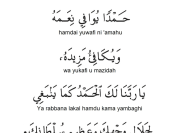 حَمْدًا يُوَافِي نِعَمَهُ
hamdai yuwafi ni 'amahu
وَيُكَافِئُ مَزِيدَهُ،
wa yukafi u mazidah
يَا رَبَّنَا لَكَ الْحَمْدُ كَمَا يَنْبَغِي
Ya rabbana lakal hamdu kama yambaghi
لِجَلَالِ وَجْهِكَ وَعَظِيمِ سُلْطَانِكَ